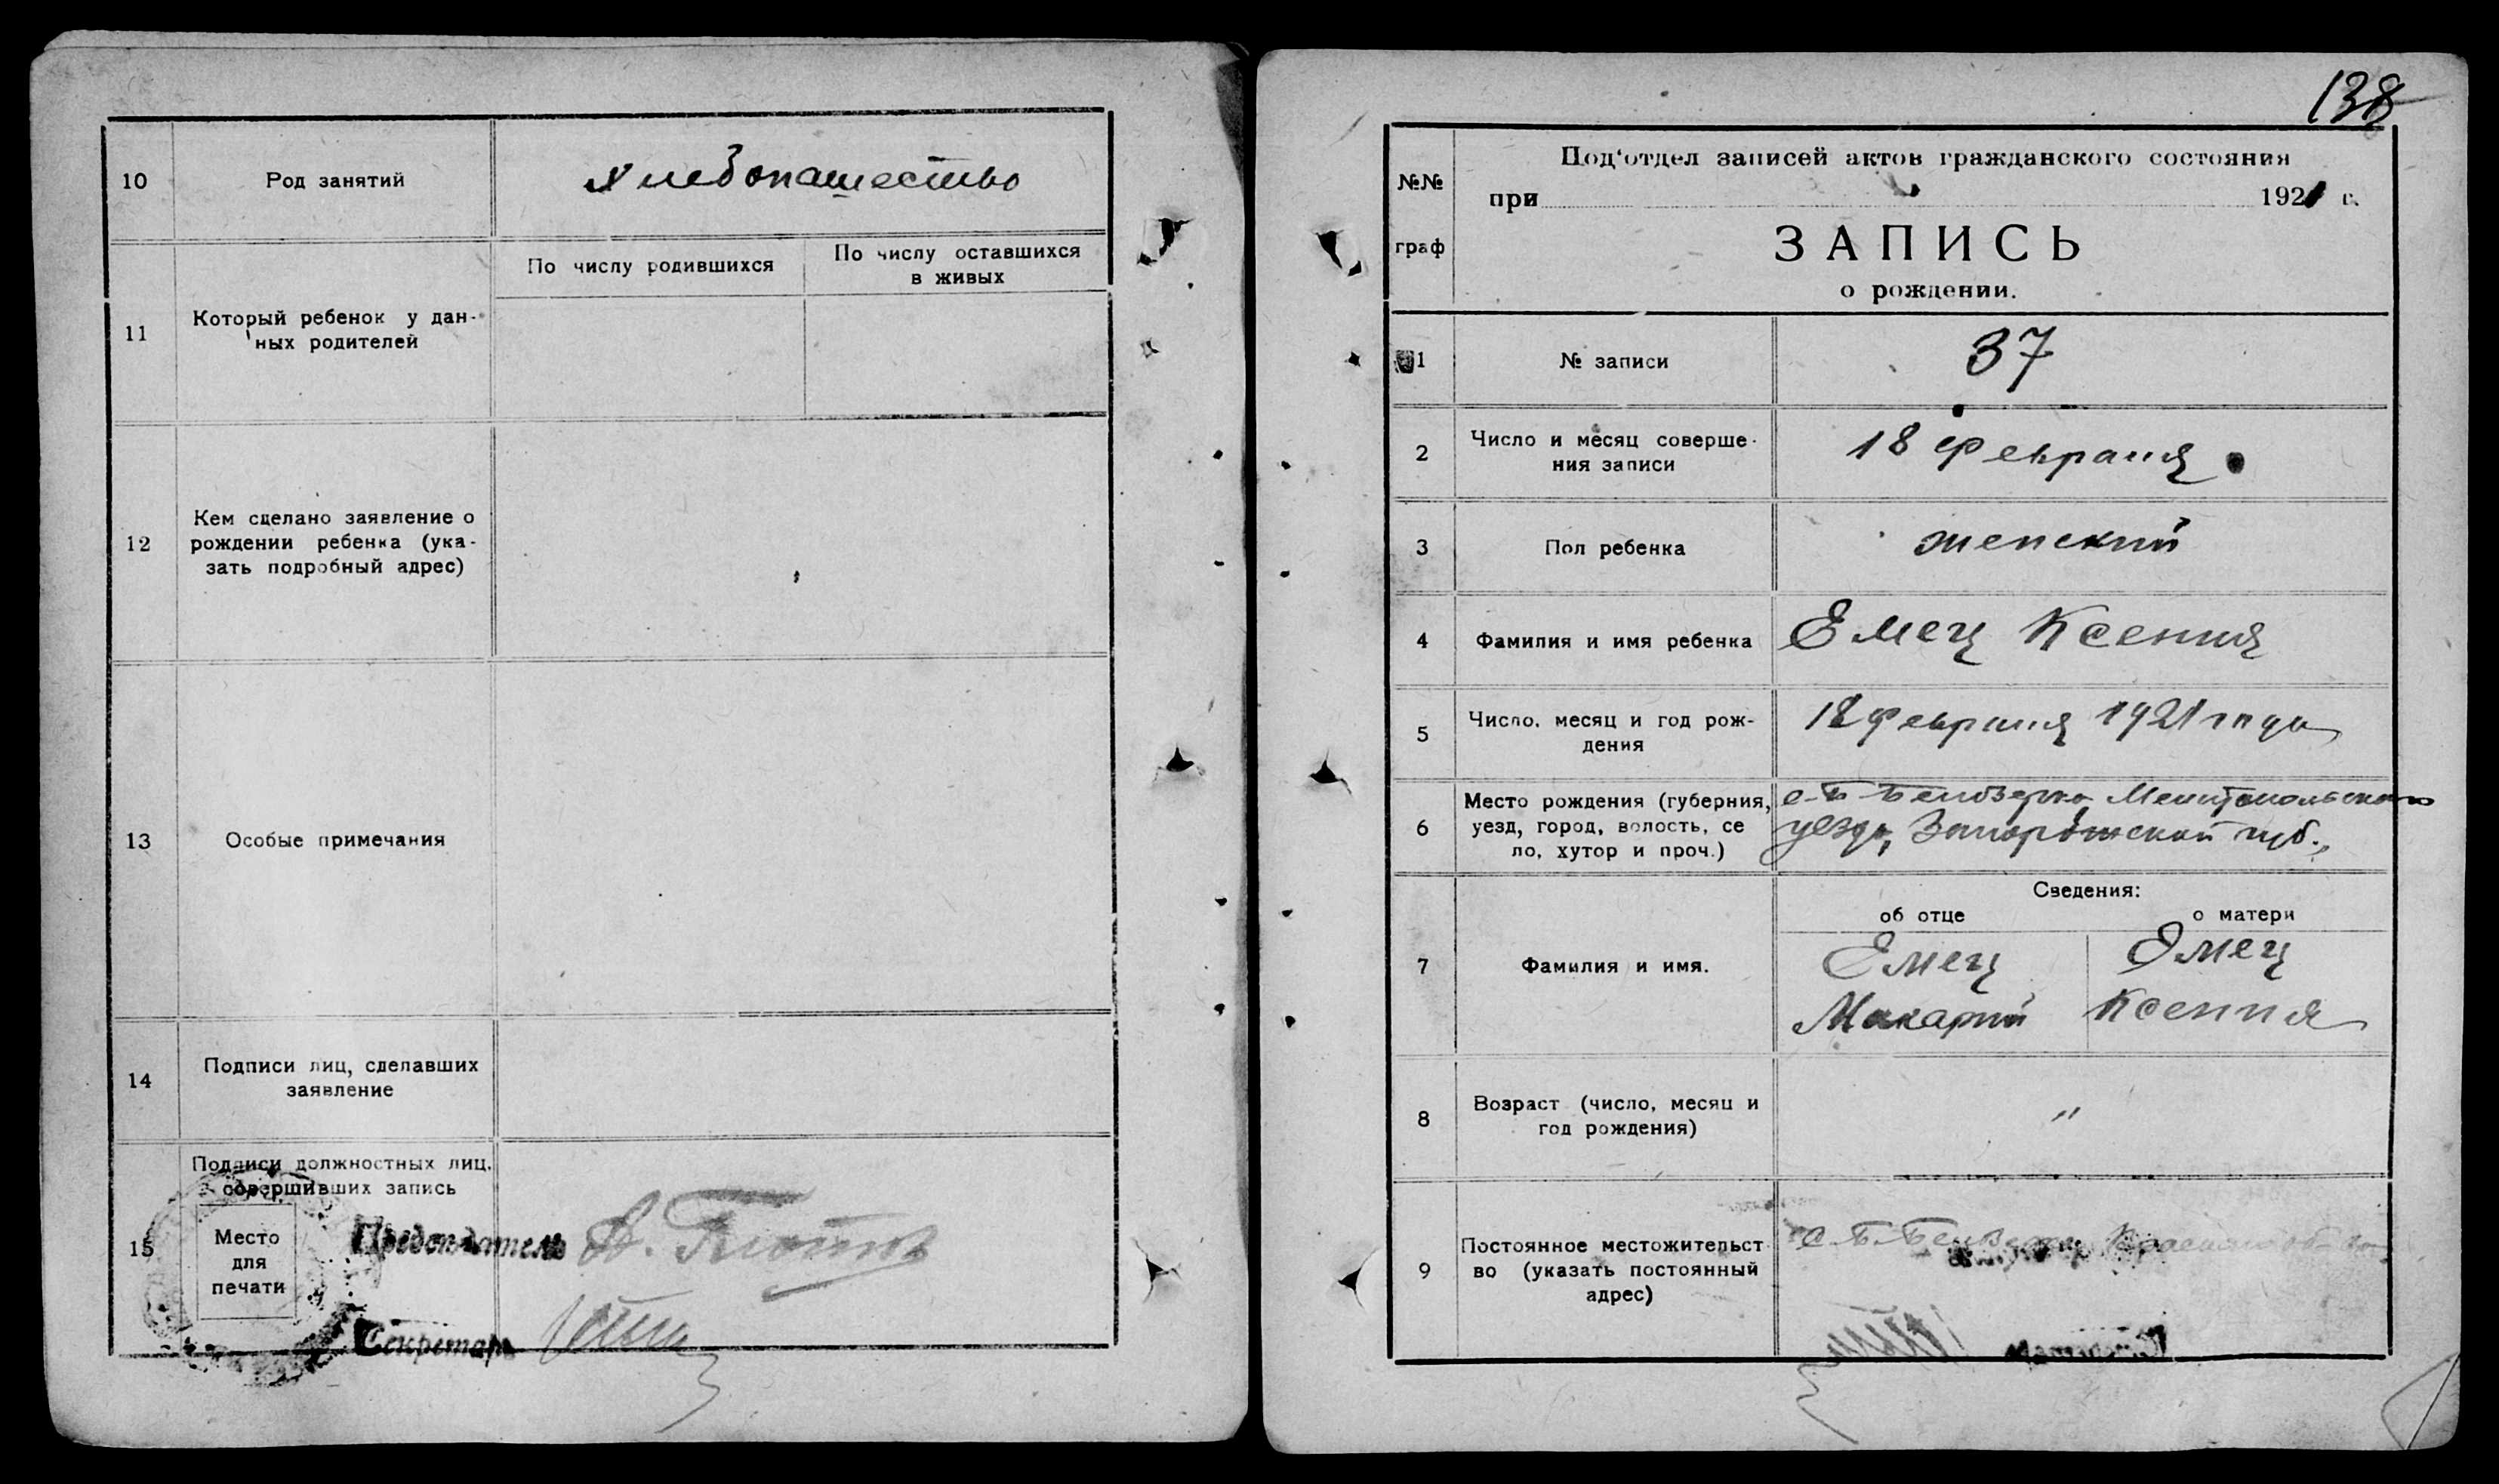 10
Род занятий
хлебопашество
11
Который ребенок у дан-
ных родителей
По числу родившихся
По числу оставшихся
в живых
12
Кем сделано заявление о
рождении ребенка (ука-
зать подробный адрес)
13
Особые примечания
14
Подписи лиц, сделавших
заявление
15
Подписи должностных лиц,
совершивших запись
Место
для
печати
Председатель
Секретарь
138
№№
граф
Под'отдел записей актов гражданского состояния
при 1921 г.
ЗАПИСЬ
о рождении.
1
№ записи
37
2
Число и месяц соверше-
ния записи
18 февраля
3
Пол ребенка
женский
4
Фамилия и имя ребенка
Емец Ксения
5
Число, месяц и год рож-
дения
18 февраля 1921 года
6
Место рождения (губерния,
уезд, город, волость, се
ло, хутор и проч.)
с. Б Белозерка Мелитопольского
уезда, Запорожской губ.,
7
Фамилия и имя.
Сведения:
об отце
о матери
Емец
Макарий
Емец
Ксения
8
Возраст (число, месяц и
год рождения)
"
9
Постоянное местожительст
во (указать постоянный
адрес)
с. Б-Белозерка